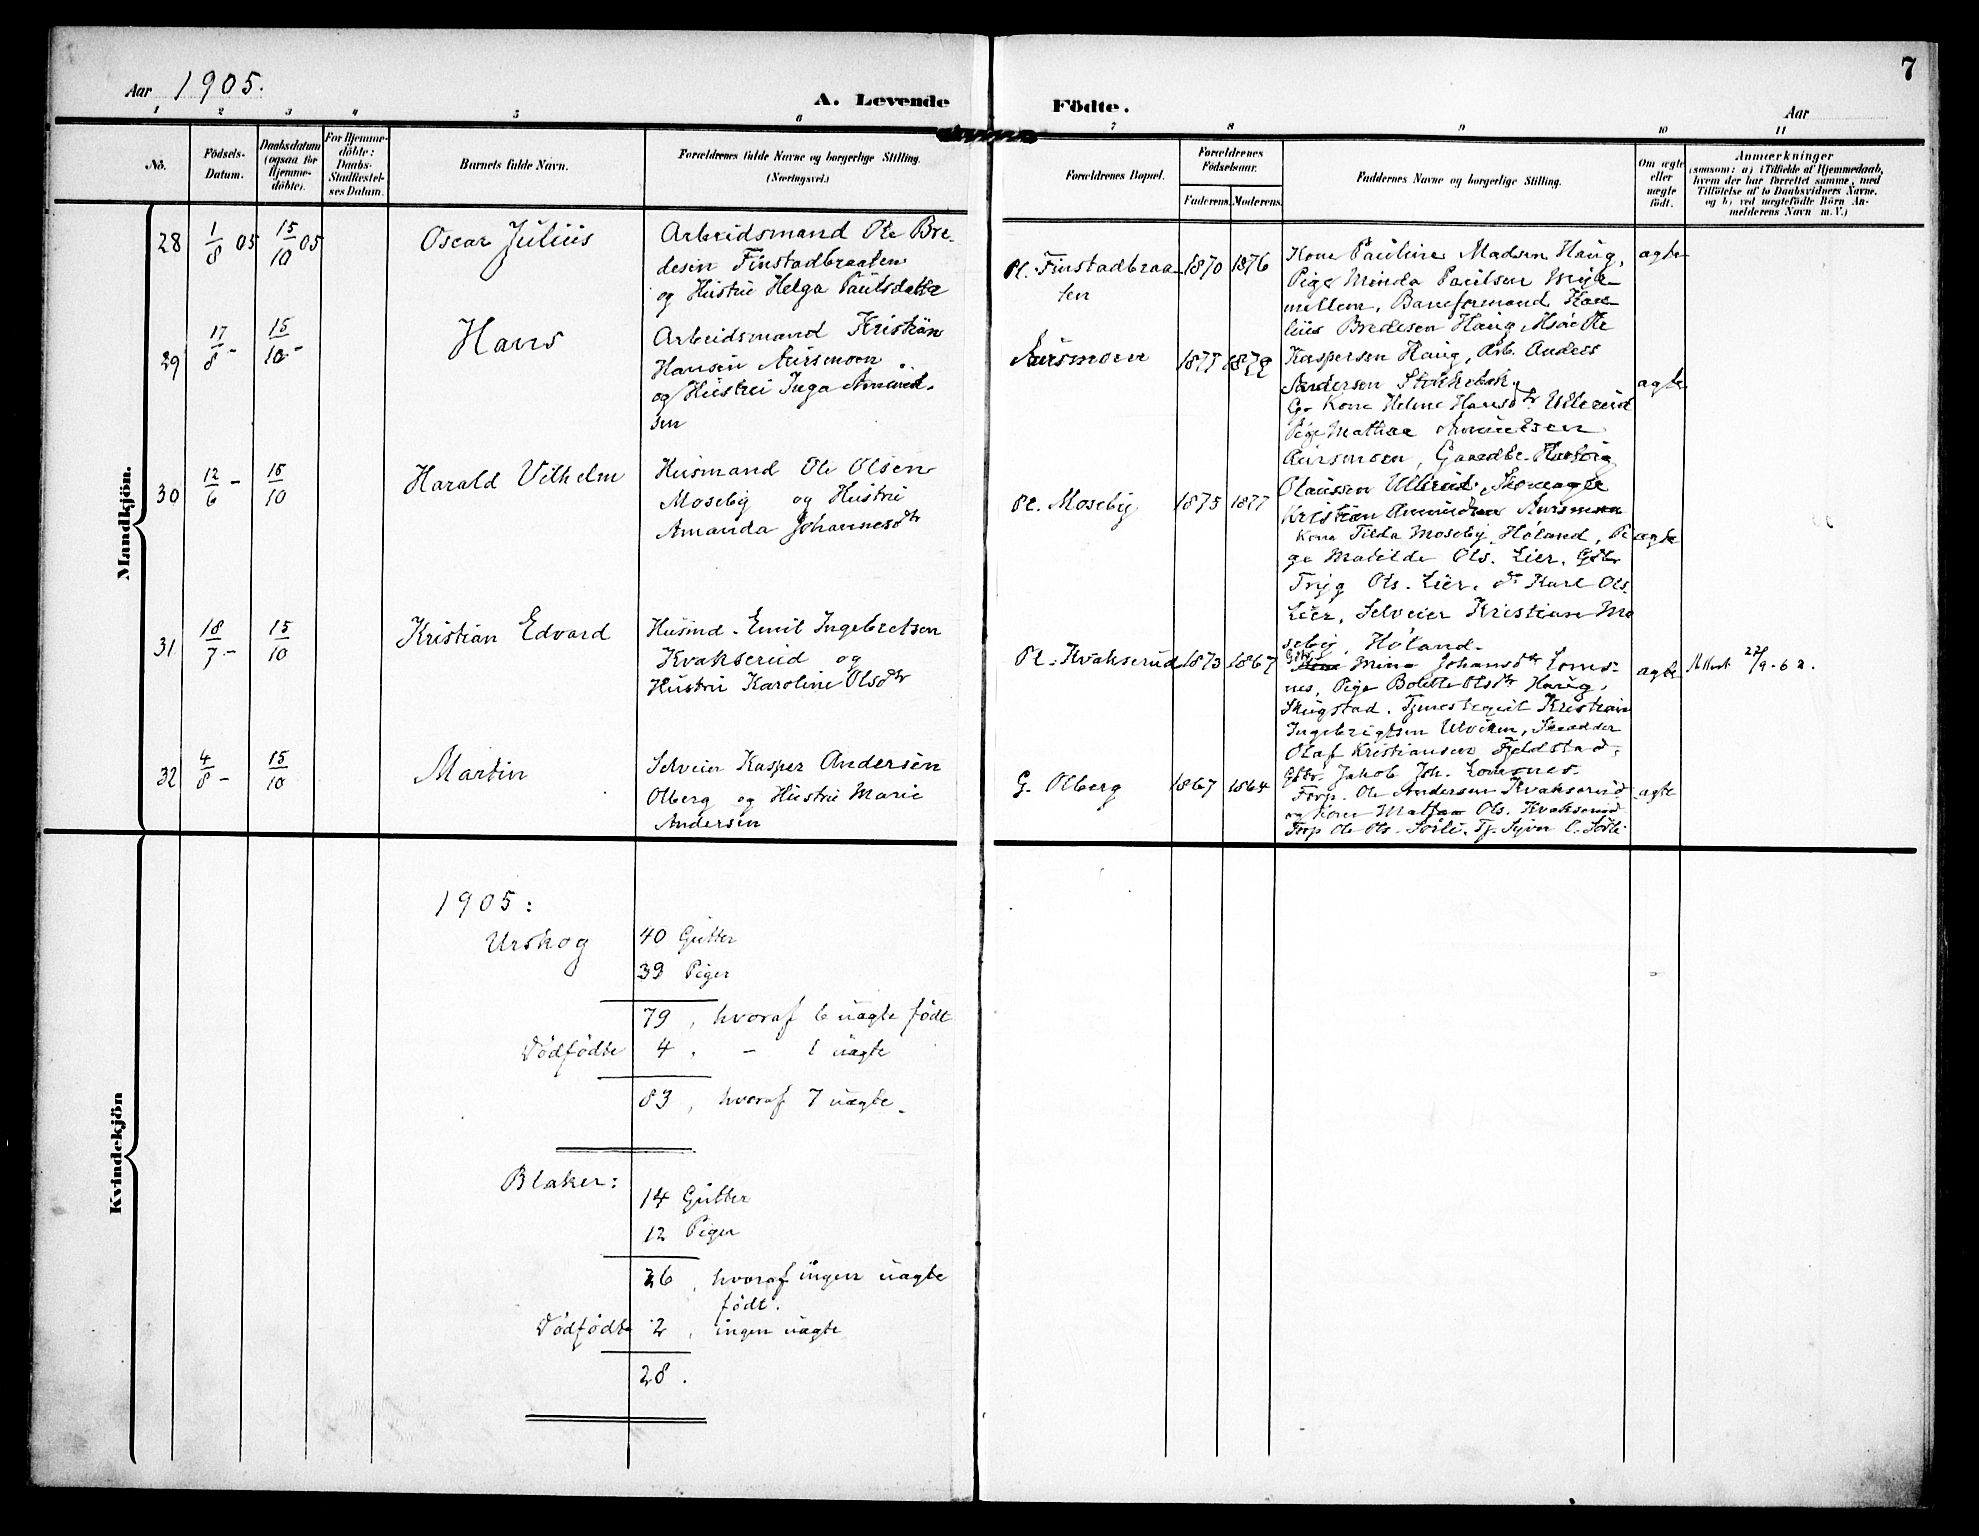 7
Aar 1905.
A. Levende Födte.
Aar
1 2 3 4 5 6 7 8 9 10 11
No.
Födsels-
Datum.
Daabsdatum
(ogsaa for
Hjemme-
döbte).
For Hjemme-
döbte:
Daabs-
Stadfæstel-
ses Datum.
Barnets fulde Navn.
Forældrenes fulde Navne og borgerlige Stilling.
(Næringsvei.)
Forældrenes Bopæl.
Forældrenes
Födselsaar.
Faderens. Moderens.
Faddernes Navne og borgerlige Stilling.
Om ægte
eller
uægte
födt.
Anmærkninger
(saasom: a) i Tilfælde af Hjemmedaab,
hvem der har forrettet samme, med
Tilföielse af to Daabsvidners Navne.
og b) ved uægtefödte Börn An-
melderens Navn m. V.)
Mandkjön.
28 1/8 05 15/10 05 Oscar Julius
Arbeidsmand Ole Bre-
desen Finstadbraaten
og Hustru Helga Paulsdatter
Pl. Finstadbraa-
ten
1870 1876
Kone Pauline Madsen Haug,
Pige Minda Paulsen
mellem, Baneformand
Bredesen Haug, Ole
Kaspersen Haug, Arb. Anders
Andersen
ægte
29 17/8 - 15/10 - Hans
Arbeidsmand Kristian
Hansen Aursmoen
og Hustru Inga Amund-
sen
Aursmoen
1877
G. Kone Helene Hansdtr Ullerud
Pige Mathea Amundsen
Aursmoen, Gaardbr.
Olaussen Ullerud,
Kristian Aursmoen
ægte
30 12/6 - 15/10 Harald Vilhelm
Husmand Ole Olsen
Moseby og Hustru
Amanda Johannesdtr
Pl. Moseby
1875 1877
Kone Tilda Moseby, Höland, Pi
ge Matilde Ols. Lier, Gbr
Tryg Ols. Lier, do Karl Ols.
Lier, Selveier Kristian Mo
seby, Höland.
ægte
31 18/7 - 15/10 Kristian Edvard
Husmd. Emil Ingebretsen
Kvakserud og
Hustru Karoline Olsdtr
Pl. Kvakserud
1873 1867
Mina Johansdtr Loms-
nes, Pige Bolette Olsdtr Haug,
Skugstad. Kristian
Ingebrigtsen Ulviken, Skrædder
Olaf Kristiansen Fjeldstad,
Gbr. Jakob Joh. Lomsnes.
ægte
Attest 27/9-62.
32 4/8 - 15/10 Martin
Selveier Kasper Andersen
Olberg og Hustru Marie
Andersen
G. Olberg
1867 1864
Forp. Ole Andersen Kvakserud
og Kone Mathea Ols. Kvakserud
Forp Ole Ols. Sörli. Tj.
ægte
Kvindekjön
1905:
Urskog 40 Gutter
39 Piger
79, hvoraf 6 uægte födt
Dödfödte 4. - 1 uægte
83, hvoraf 7 uægte.
Blaker:
14 Gutter
12 Piger
26, hvoraf ingen uægte
födt.
Dödfödte 2, ingen uægte
28.